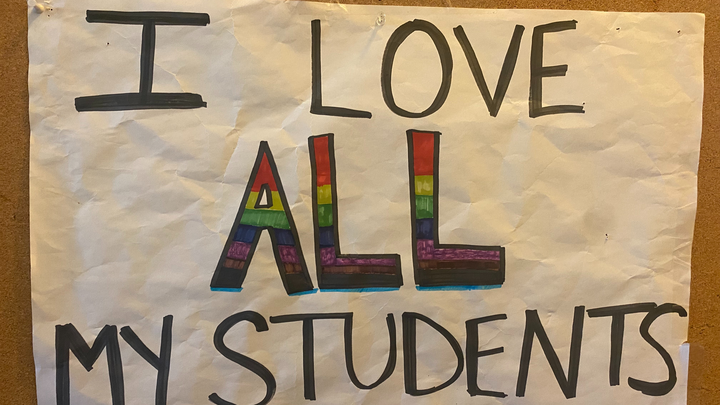 I LOVE
ALL
MY STUDENTS